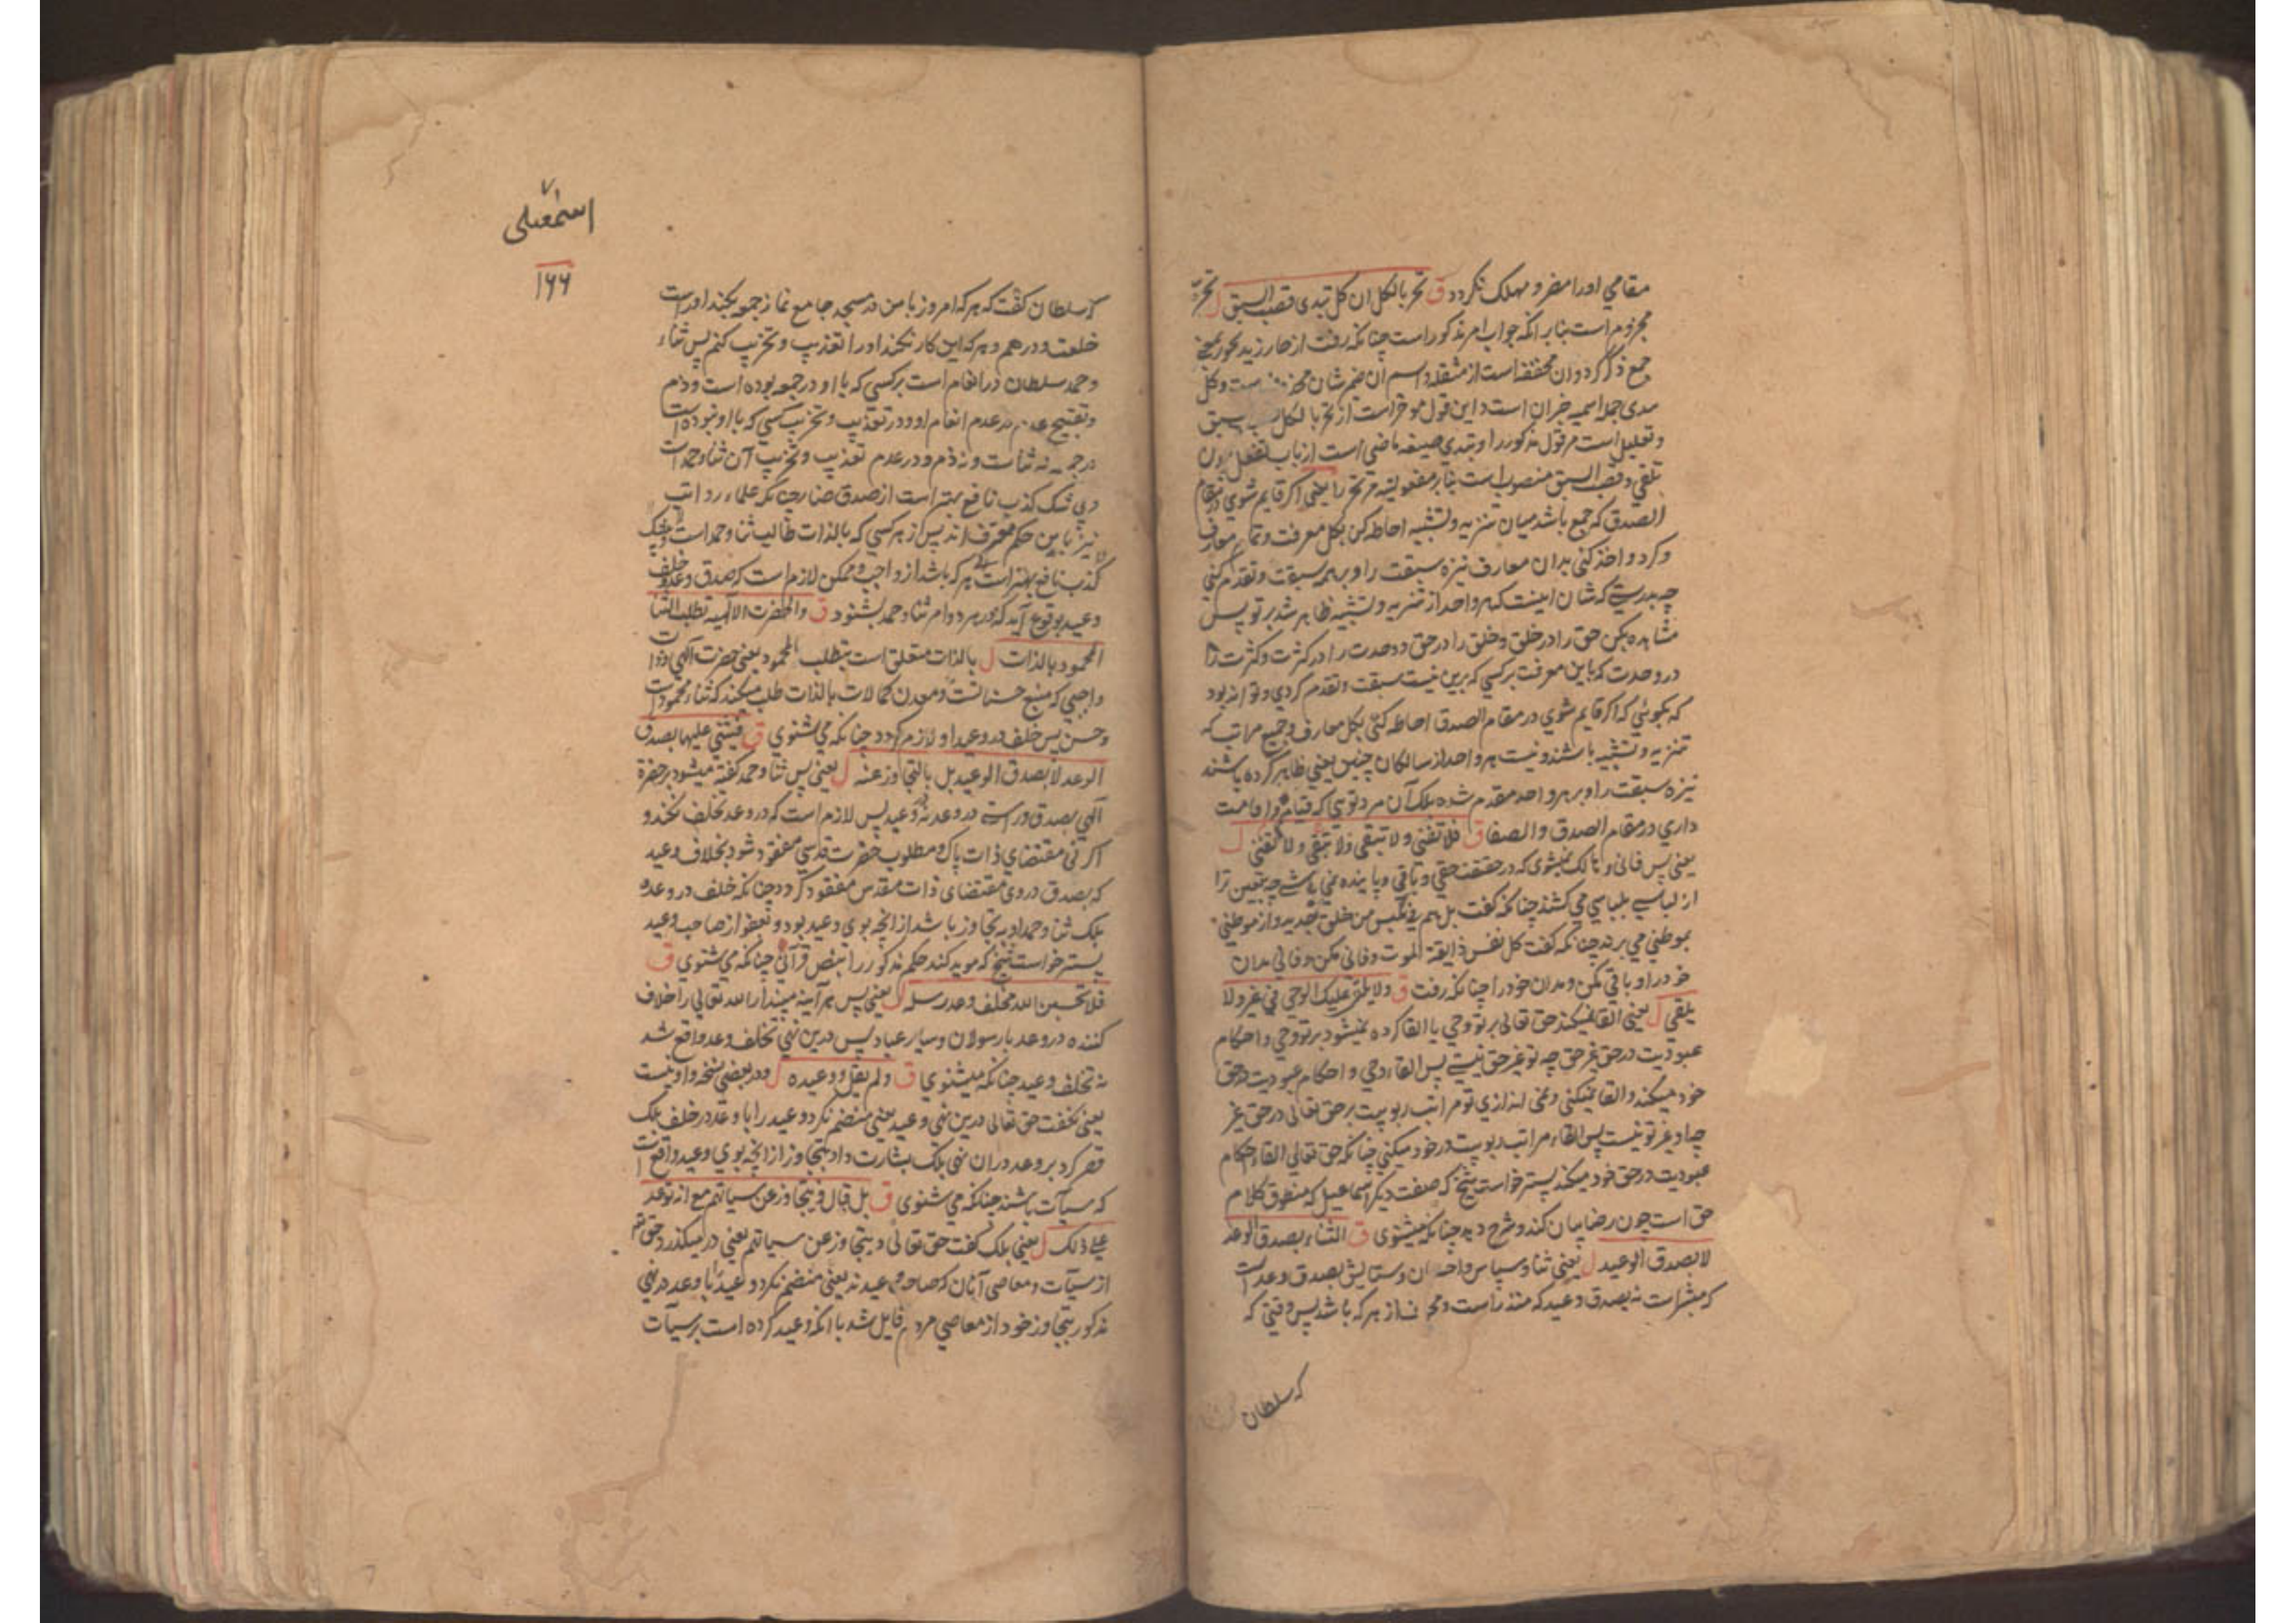 مقامی اورا مضر و مهلک نگردد ق تحز بالکل ان کل تبدی قصب السبق ل تحز
مجزوم است بنابر انکه جواب امر مذکور است چنانکه رفت از حاز زید یحوز بمعنی
جمع ذکر کرد و ان مخففه است از مثقله و اسم ان ضمیر شان است و کل
تبدی جمله اسمیه خبر ان است و این قول موخر است از تحز بالکل سبق
و تعلیل است مر قول مذکور را و تبدی صیغه ماضی است از باب تفعل چون
تلقی و قصب السبق منصوب است بنابر مفعولیته مر تحز را یعنی اکر قایم شوی در مقام
الصدق که جمع باشد میان تنزیه و تشبیه احاطه کن بکل معرفت و تمام معارف
و کرد و اخذ کنی بدان معارف نیزه سبقت را و بر همه سبقت و تقدم کنی
چه بدرستی که شان اینست که هر واحد از تنزیه و تشبیه ظاهر شد بر تو پس
مشاهده بکن حق را در خلق و خلق را در حق و وحدت را در کثرت و کثرت را
در وحدت که باین معرفت بر کسی که برین نیست سبقت و تقدم کردی و تواند بود
که بگوئی که اکر قایم شوی در مقام الصدق احاطه کنی بکل معارف و جمیع مراتب که
تنزیه و تشبیه باشند و نیست هر واحد از سالکان چنین یعنی ظاهر کرده باشند
نیزه سبقت را و بر هر واحد مقدم شده بلک آن مرد توئی که قیام و اقامت
داری در مقام الصدق و الصفا ق فلا تفنی و لا تبقی و لا تبقی و لا تفنی ل
یعنی پس فانی و هالک نمیشوی که در حقیقت حقی و باقی و پاینده نمی باشی چه بتعین ترا
از لباسی بلباسی می کشند چنانکه کفت بل هم فی لبس من خلق جدید و از موطنی
بموطنی می برند چنانکه کفت کل نفس ذایقة الموت و فانی مکن و فانی مدان
خود را و باقی مکن و مدان خود را چنانکه رفت ق و لا یلقی علیک الوحی فی غیر و لا
یلقی ل یعنی القا نمیکند حق تعالی بر تو وحی یا القا کرده نمیشود بر تو وحی و احکام
عبودیت در حق غیر حق چه تو غیر حق نیستی پس القاء وحی و احکام عبودیت در حق
خود میکند و القا نمیکنی و نمی اندازی تو مراتب ربوبیت بر حق تعالی در حق غیر
چه او غیر تو نیست پس القاء مراتب ربوبیت در خود میکنی چنانکه حق تعالی القاء احکام
عبودیت در حق خود میکند پستر خواست شیخ که صفت دیکر اسماعیل که منطوق کلام
حق است چون رضا بیان کند و شرح دهد چنانکه میشنوی ق الثناء بصدق الوعد
لا بصدق الوعید ل یعنی ثنا و سپاس و ستایش بصدق وعد است
که مبشر است نه بصدق وعید که منذر است و از هر که باشد پس وقتی که
که سلطان
اسمعیلی
۱۶۶
که سلطان کفت که هر که امروز با من در مسجد جامع نماز جمعه بکند او راست
خلعت و درهم و هر که این کار نکند او را تعذیب و تخریب کنم پس ثناء
و حمد سلطان در انعام است بر کسی که با او در جمعه بوده است و ذم
و تقبیح در عدم انعام او و در تعذیب و تخریب کسی که با او نبوده است
در جمعه نه ثناست و نه ذم و در عدم تعذیب و تخریب آن ثنا و حمد است
و بی شک کذب نافع بهتر است از صدق ضار چنانکه علماء
نیز باین حکم معترف اند پس از هر کسی که بالذات طالب ثنا و حمد است و بی شک
کذب نافع بهتر است هر که باشد از واجب و ممکن لازم است که صدق وعد و خلف
وعید بوقوع آید که در هر دو امر ثنا و حمد بشنود ق و الحضرت الالهیه تطلب الثنا
المحمود بالذات ل بالذات متعلق است بتطلب المحمود یعنی حضرت آلهی و ذات
واجبی که منبع حسنات و معدن کمالات است بالذات طلب میکند که ثناء محمود است
و حسن پس خلف در وعید او لازم کردد چنانکه می شنوی ق فیثنی علیها بصدق
الوعد لا بصدق الوعید بل بالتجاوز عنه ل یعنی پس ثنا و حمد کفته میشود بر حضرة
آلهی بصدق و راستی در وعد نه در وعید پس لازم است که در وعد تخلف نکند و
اکر نی مقتضای ذات پاک و مطلوب حضرت قدسی مفقود شود بخلاف وعید
که بصدق در وی مقتضای ذات مقدس مفقود کردد چنانکه خلف در وعده
بلک ثنا و حمد او به تجاوز باشد از انچه بوی وعید بود و بعفو از صاحب وعید
پستر خواست شیخ که موید کند حکم مذکور را بنص قرآنی چنانکه می شنوی ق
فلا تحسبن الله مخلف وعده رسله ل یعنی پس هر آینه مپندار الله تعالی را خلاف
کننده در وعد با رسولان و سایر عباد پس درین نهی تخلف وعد واقع شد
نه تخلف وعید چنانکه میشنوی ق و لم یقل و وعیده ل و در بعضی نسخه واو نیست
یعنی نکفت حق تعالی درین نهی وعید یعنی منضم نکرد وعید را با وعد در خلف بلک
قصر کرد بر وعد در ان نهی بلک بشارت داد بتجاوز از انچه بوی وعید واقع است
که سیآت باشند چنانکه می شنوی ق بل قال و یتجاوز عن سیاتهم مع انه توعد
علی ذلک ل یعنی بلک کفت حق تعالی و یتجاوز عن سیاتهم یعنی در میکذرد حق هم
از سیآت و معاصی آنان که صاحب وعیدند یعنی منضم نکرد وعید را با وعد در نهی
مذکور بتجاوز خود از معاصی مردم قایل شد با انکه وعید کرده است بر سیآت